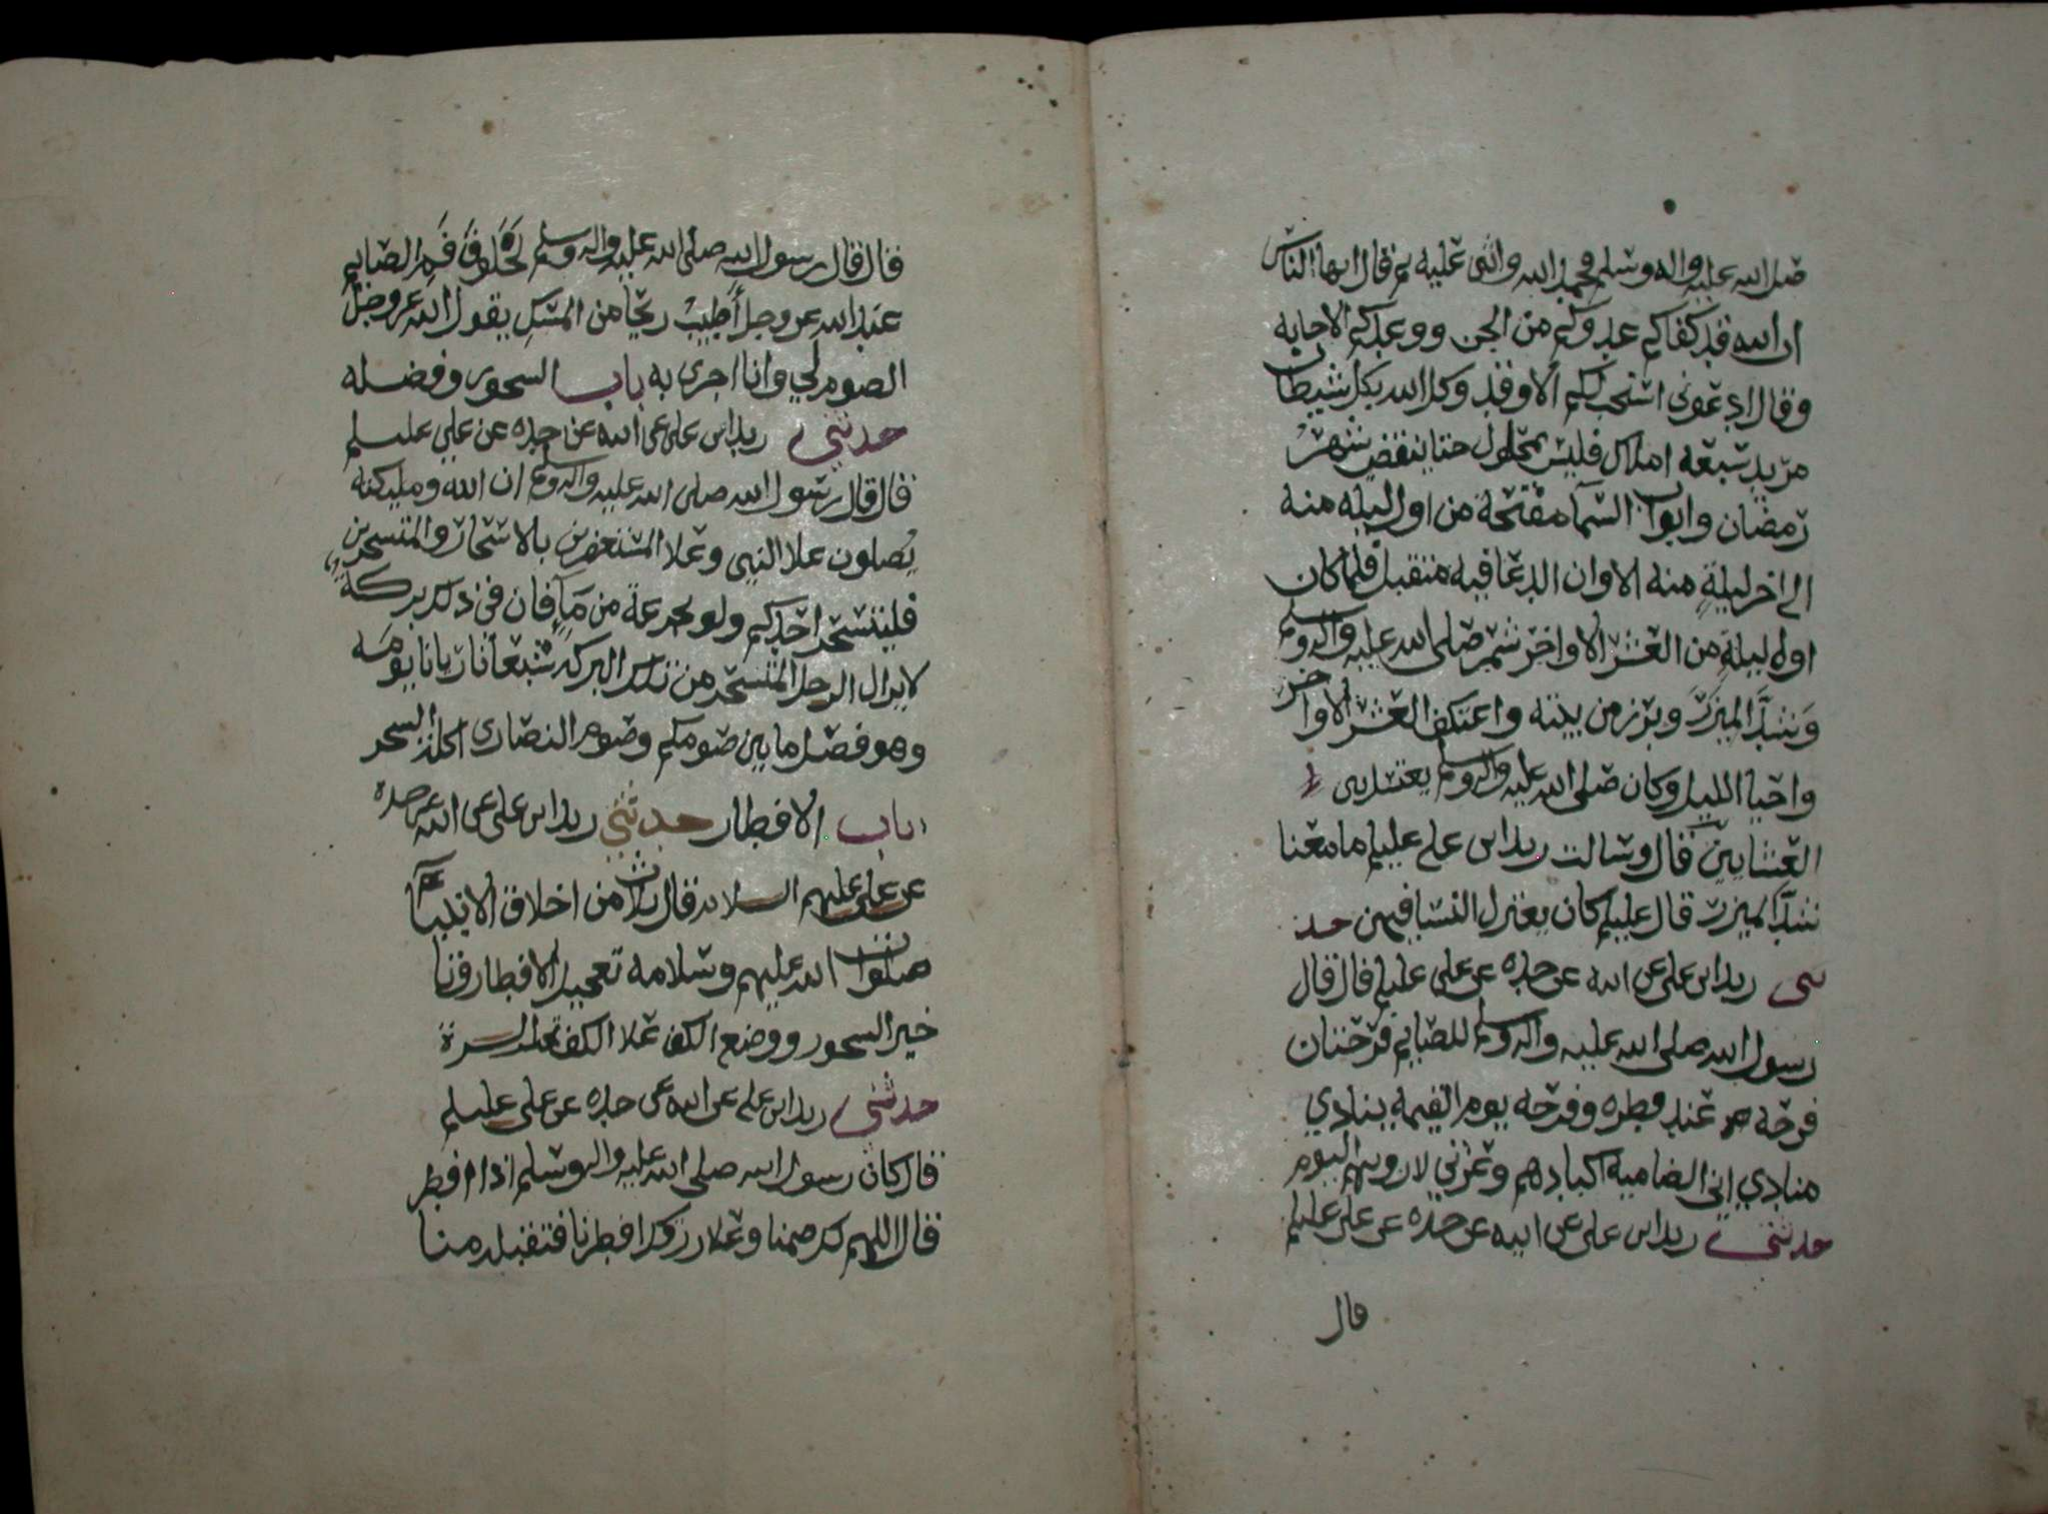 صلى الله عليه واله وسلم فحمد الله واثنى عليه ثم قال ايها الناس
ان الله قد كفاكم عدوكم من الجن ووعدكم الاجابه
وقال ادعوني استجب لكم الا وقد وكل الله بكل شيطان
مريد سبعه املاك فليس بمحلول حتا ينقضي شهر
رمضان وابواب السما مفتحة من اول ليله منه
الى اخر ليلةٍ منه الا وان الدعا فيه متقبل فلما كان
اول ليلةٍ من العشر الاواخر شمر صلى الله عليه واله وسلم
وَشدَّ الميزر وبرز من بيته واعتكف العشر الاواخر
واحيا الليل وكان صلى الله عليه واله وسلم يغتسل بين
العشايين قال وسالت زيد ابن علي عليلم ما معنا
شدَّ الميزر قال عليلم كان يعتزل النسا فيهن حد
ثنى زيد ابن علي عن ابيه عن جده عن علي عليلم قال قال
رسول الله صلى الله عليه واله وسلم للصايم فرحتان
فرحه عند فطره وفرحه يوم القيمه ينادي
منادي اين الضاميه اكبادهم وعزتي لاروينهم اليوم
حدثني زيد ابن علي عن ابيه عن جده عن علي عليلم
قال
قال قال رسول الله صلى الله عليه واله وسلم لَخُلُوْفُ فَمِ الصايم
عند الله عز وجل أَطيبُ ريحًا من المسكِ يقول الله عز وجل
الصوم لي وانا اجزى به باب السحور وفضله
حدثني زيد ابن علي عن ابيه عن جده عن علي عليلم
قال قال رسول الله صلى الله عليه واله وسلم ان الله ومليكته
يُصلون علا النبي وعلا المستغفرين بالاسحار والمتسحرين
فليتسحر احدكم ولو بجرعة من مآءٍ فان في ذلك بركة
لا يزال الرجل المتسحر من تلك البركه شبعانا ريانا يومه
وهو فصل ما بين صومكم وصوم النصارى اكله السحر
باب الافطار حدثني زيد ابن علي عن ابيه عن جده
عن علي عليهم السلام قال ثلاث من اخلاق الانبيآ
صلوات الله عليهم وسلامه تعجيل الافطار وتا
خير السحور ووضع الكف علا الكف تحت السرة
حدثني زيد ابن علي عن ابيه عن جده عن علي عليلم
قال كان رسول الله صلى الله عليه واله وسلم اذا افطر
قال اللهم لك صمنا وعلا رزقك افطرنا فتقبله منا